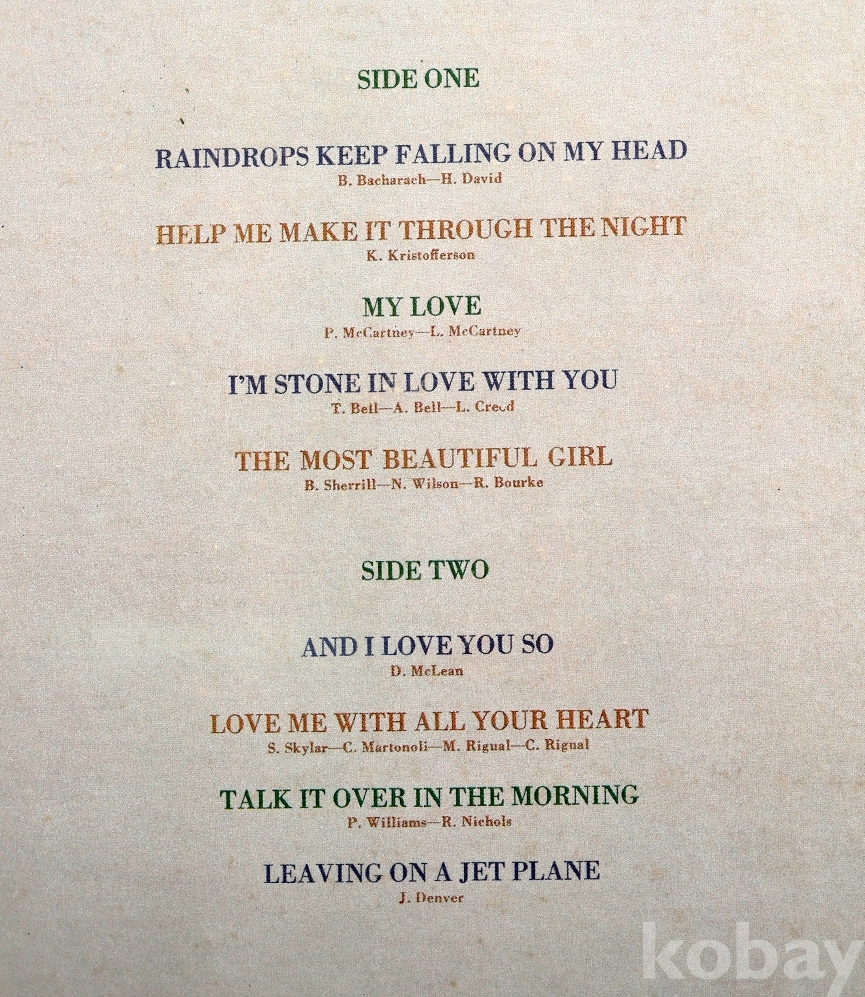 SIDE ONE
RAINDROPS KEEP FALLING ON MY HEAD
B. Bacharach—H. David
HELP ME MAKE IT THROUGH THE NIGHT
K. Kristofferson
MY LOVE
P. McCartney—L. McCartney
I'M STONE IN LOVE WITH YOU
T. Bell—A. Bell—L. Creed
THE MOST BEAUTIFUL GIRL
B. Sherrill—N. Wilson—R. Bourke
SIDE TWO
AND I LOVE YOU SO
D. McLean
LOVE ME WITH ALL YOUR HEART
S. Skylar—C. Martonoli—M. Rigual—C. Rigual
TALK IT OVER IN THE MORNING
P. Williams—R. Nichols
LEAVING ON A JET PLANE
J. Denver
kobay